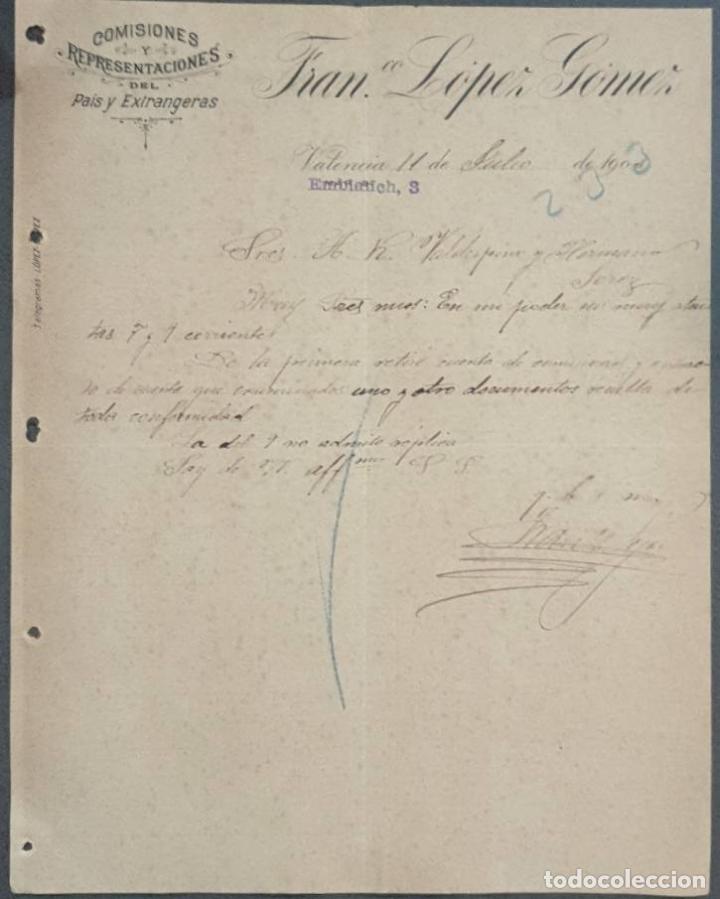 COMISIONES
Y
REPRESENTACIONES
DEL
País y Extrangeras
Fran.co López Gómez
Valencia 11 de Julio de 190
Embláuch, 3
233
Telegramas LÓPEZ
Sres. A. R. Valdespino y Hermano
Jerez
Muy Sres mios: En mi poder sus muy aten
tas 7 y 9 corriente
De la primera retiré cuenta de comisiones y
de cuenta que examinados uno y otro documentos resulta de
toda conformidad
La del 9 no admite réplica
Soy de Vd. affmo S S
q b s m
todocoleccion.net